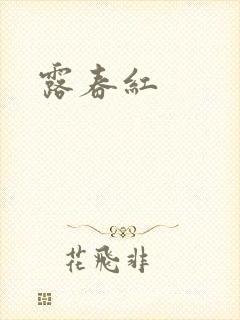 露春紅
花飛非